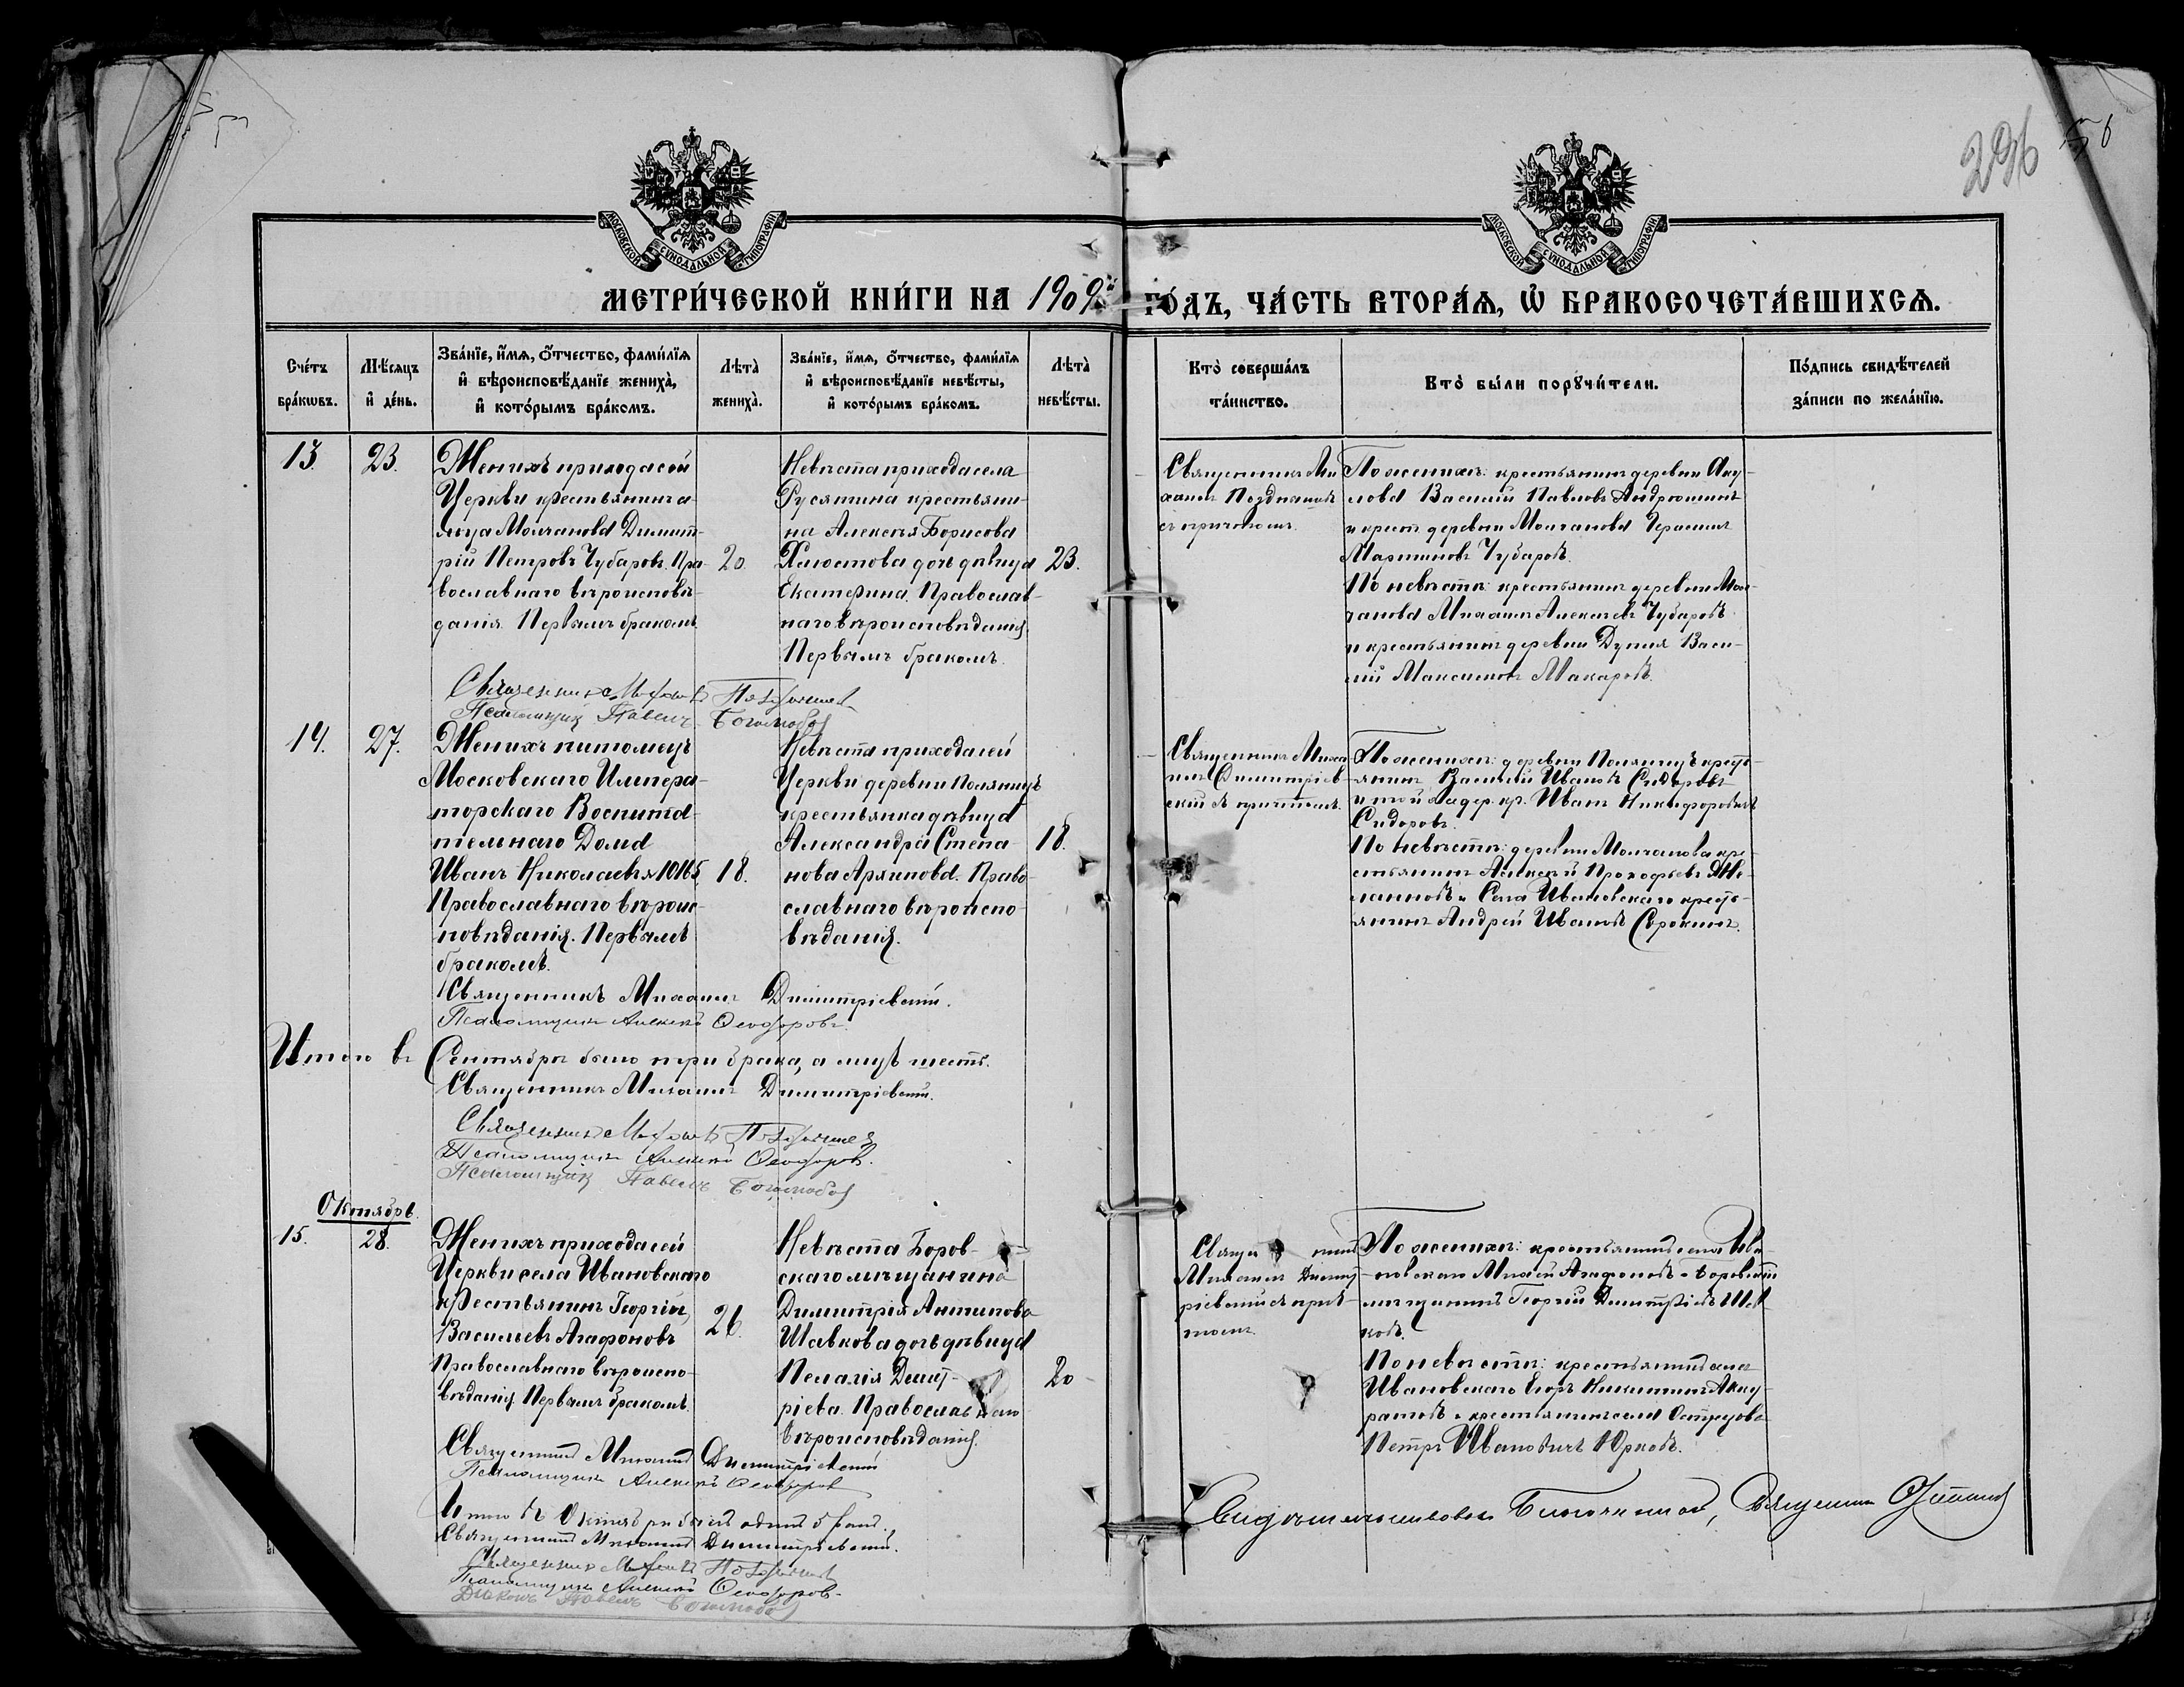 296
56
МОСКОВСКОЙ СѴНОДАЛЬНОЙ ТИПОГРАФІИ
МОСКОВСКОЙ СѴНОДАЛЬНОЙ ТИПОГРАФІИ
МЕТРИ́ЧЕСКОЙ КНИ́ГИ НА 1909й ГО́ДЪ, ЧА́СТЬ ВТОРА́Я, Ѡ҆ БРАКОСОЧЕТА́ВШИХСЯ.
Сче́тъ
бра́кѡвъ.
Мѣ́сяцъ
и҆ де́нь.
Зва́нїе, и҆́мя, ѻ҆́тчество, фами́лїя
и҆ вѣроисповѣ́данїе жениха̀,
и҆ кото́рымъ бра́комъ.
Лѣ́та̀
жениха̀.
Зва́нїе, и҆́мя, ѻ҆́тчество, фами́лїя
и҆ вѣроисповѣ́данїе невѣ́сты,
и҆ кото́рымъ бра́комъ.
Лѣ́та̀
невѣ́сты.
Кто̀ соверша́лъ
та́инство.
Кто̀ бы́ли порꙋчи́тели.
По́дпись свидѣ́телей
за́писи по жела́нїю.
13.
23.
Женихъ прихода сей
Церкви крестьянинъ
Молчанова Димит-
рій Петровъ Чубаровъ. Пра-
вославнаго вѣроисповѣ-
данія. Первымъ бракомъ.
20.
Невѣста прихода села
Русятина крестьяни-
на Алексѣя Борисова
Хлюстова дочь дѣвица
Екатерина. Православ-
наго вѣроисповѣданія.
Первымъ бракомъ.
23.
Священникъ Ми
хаилъ Поздняковъ
съ причтомъ.
По женихѣ: крестьянинъ деревни Аку-
лова Василій Павловъ Андрюшинъ
и крест. деревни Молчанова Герасимъ
Мартиновъ Чубаровъ.
По невѣстѣ: крестьянинъ деревни Мол-
чанова Михаилъ Алексѣевъ Чубаровъ
и крестьянинъ деревни Дупля Васи-
лій Максимовъ Макаровъ.
Священникъ Михаилъ Поздняковъ
Псаломщикъ Павелъ Боголюбовъ
14.
27.
Женихъ питомецъ
Московскаго Импера-
торскаго Воспита-
тельнаго Дома
Иванъ Николаевъ
Православнаго вѣроис-
повѣданія. Первымъ
бракомъ.
18.
Невѣста прихода сей
Церкви деревни Полянищъ
крестьянка дѣвица
Александра Степа-
нова. Право-
славнаго вѣроиспо-
вѣданія.
18.
Священникъ Миха
илъ Димитріев-
скій съ причтомъ.
По женихѣ: деревни Полянищъ кресть-
янинъ Василій Ивановъ Сидоровъ
и той же дер. кр. Иванъ Никифоровичъ
Сидоровъ.
По невѣстѣ: деревни Молчанова кре-
стьянинъ Алексѣй Прокофьевъ
и Села Ивановскаго кресть-
янинъ Андрей Ивановъ Сорокинъ.
Священникъ Михаилъ Димитріевскій.
Псаломщикъ Алексѣй Ѳеодоровъ.
Итого въ Сентябрѣ было три брака, а лицъ шесть.
Священникъ Михаилъ Димитріевскій.
Священникъ Михаилъ Поздняковъ
Псаломщикъ Алексѣй Ѳеодоровъ.
Псаломщикъ Павелъ Боголюбовъ
Октябрь.
15.
28.
Женихъ прихода сей
Церкви села Ивановскаго
крестьянинъ Георгій
Васильевъ Агафоновъ
Православнаго вѣроиспо-
вѣданія. Первымъ бракомъ.
26.
Невѣста Боров-
скаго мѣщанина
Димитрія Антипова
Шавкова дочь дѣвица
Пелагія Димит-
ріева. Православнаго
вѣроисповѣданія.
20
Священникъ
Михаилъ Димит
ріевскій съ прич-
томъ.
По женихѣ: крестьянинъ села Ива-
новскаго Агафоновъ и Боровскій
мѣщанинъ Георгій Димитріевъ Шав
ковъ.
По невѣстѣ: крестьянинъ села
Ивановскаго Егоръ Никитинъ Акку-
ратовъ и крестьянинъ села
Петръ Ивановичъ Юрковъ.
Священникъ Михаилъ Димитріевскій
Псаломщикъ Алексѣй Ѳеодоровъ
Итого въ Октябрѣ былъ одинъ бракъ.
Священникъ Михаилъ Димитріевскій.
Священникъ Михаилъ Поздняковъ
Псаломщикъ Алексѣй Ѳеодоровъ.
Діаконъ Павелъ Боголюбовъ
Свидѣтельствовалъ Благочинный, Священникъ